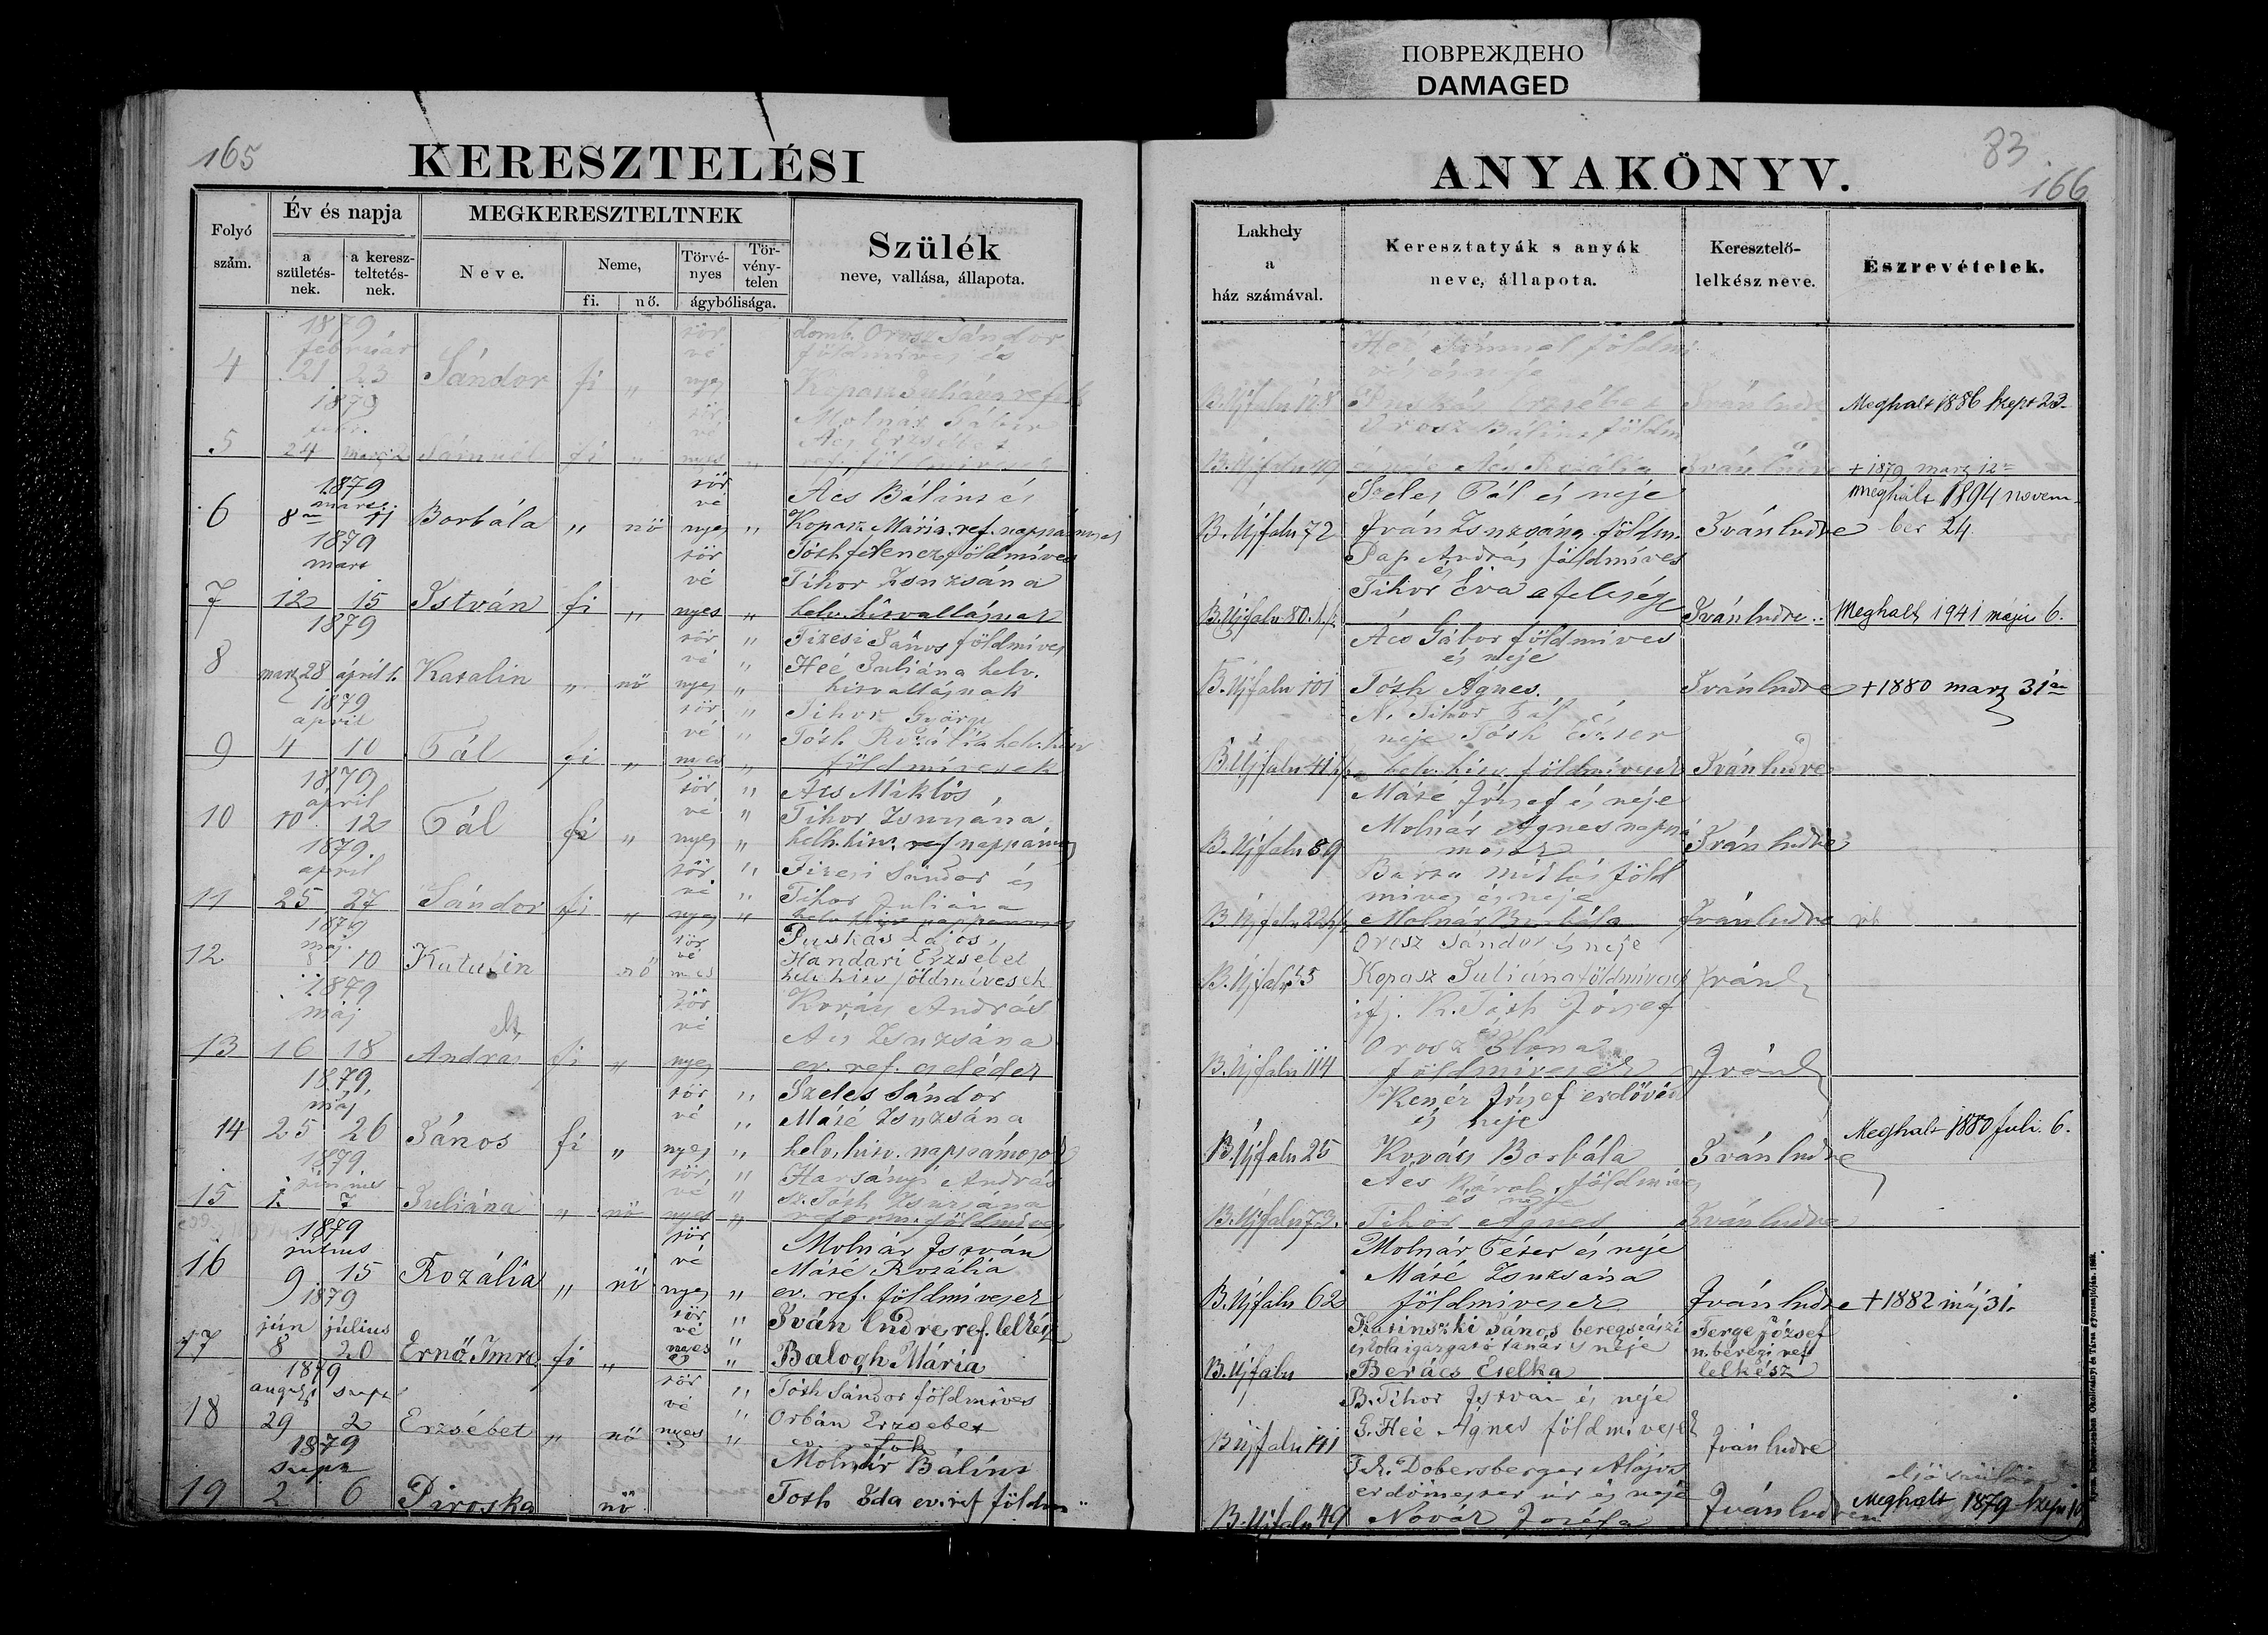 ПОВРЕЖДЕНО
DAMAGED
165
KERESZTELÉSI
Folyó szám.
Év és napja
a születés-nek.
a keresz-teltetés-nek.
MEGKERESZTELTNEK
Neve.
Neme,
fi.
nő.
Törvé-nyes
Tör-vény-telen
ágybólisága.
Szülék
neve, vallása, állapota.
83
166
ANYAKÖNYV.
Lakhely
a
ház számával.
Keresztatyák s anyák
neve, állapota.
Keresztelő-
lelkész neve.
Észrevételek.
1879 február
4 21 23 Sándor fi „ tör vé nyes
domb. Orosz Sándor
földmives és
Kopasz Juliána
Heé Sámuel földmi
B. Ujfalu 178
Iván Endre
Meghalt 1886 Szept 23.
1879 febr.
5 24 marz 2 Sámuel fi „ tör vé nyes
Molnár Gábor
Ács Erzsébet
ref. földmivesek
Orosz Bálint földm
és neje Ács Rozália
B. Ujfalu 49
Iván Endre
+ 1879 marz 12
1879
6 8 11 Borbála „ nö tör vé nyes „
Acs Bálint és
Kopasz Mária ref. nappámosok
B. Ujfalu 72
Szeles Pál és neje
Iván Zsuzsána földm.
Iván Endre
meghalt 1894 novem-
ber 24
1879 mart
7 12 15 István fi „ tör vé nyes „
Tóth ferencz földmíves
Tihor Zsuzsána
helv. hitvallásuak
B. Ujfalu 80.
Pap András földmíves
és
Tihor Éva a felesége
Iván Endre
Meghalt 1941 május 6.
1879
8 marz 28 ápril 1. Katalin „ nö tör vé nyes „
Tizesi János földmíves
Heé Juliána helv.
hitvallásuak
B. Ujfalu 101
Ács Gábor földmives
és neje
Tóth Ágnes.
Iván Endre
+ 1880 marz 31
1879 april
9 4 10 Pál fi „ tör vé nyes „
Tihor György
Tóth Rozália helv. hitv
földmivesek
B. Ujfalu 41
N. Tihor Pál és
neje Tóth Eszter
helv. hitv földmivesek
Iván Endre
1879 ápril
10 10 12 Pál fi „ tör vé nyes „
Ács Miklós
Tihor Zsuzsána
helv. hitv. ref nappámos
B. Ujfalu 89
Máté József és neje
Molnár Ágnes nappá
mosok
Iván Endre
1879 april
11 25 27 Sándor fi „ tör vé nyes „
Tizesi Sándor és
Tihor Juliána
B. Ujfalu 22
Barta Miklós föld
mives és neje
Molnár Borbála
Iván Endre
1879 máj.
12 8 10 Katalin nö tör vé nyes
Puskás Lajos,
Handari Erzsébet
helv hitv földmívesek
B. Ujfalu 53
Orosz Sándor és neje
Kopasz Juliána földmívesek
Iván E
1879 máj
13 16 18 András fi „ tör vé nyes
Kovács András
Ács Zsuzsána
ev. ref. cselédek
B. Ujfalu 114
ifj. K. Tóth József
és
Orosz Ilona
földmivesek
Iván E
1879 máj
14 25 26 János fi „ tör vé nyes „
Szeles Sándor
Máté Zsuzsána
helv. hitv. nappámosok
B. Ujfalu 25
Kenéz József erdővéd
és neje
Kovács Borbála
Iván Endre
Meghalt 1880 Juli. 6.
1879 junius
15 1. 7 Juliána „ nö tör vé nyes „
Harsányi András
sz. Tóth Zsuzsána
reform. földmíves
B. Ujfalu 73.
Ács Károly földmíves
és neje
Tihor Ágnes
Iván Endre
1879 július
16 9 15 Rozália „ nö tör vé nyes „
Molnár István
Máté Rozália
ev. ref. földmivesek
B. Ujfalu 62
Molnár Péter és neje
Máté Zsuzsána
földmivesek
Iván Endre
+ 1882 máj 31.
1879
17 jún 8 július 20 Ernő Imre fi „ tör vé nyes „
Iván Endre ref. lelkész
és
Balogh Mária
B. Ujfalu
Katinszki János beregszászi
iskola igazgató tanár s neje
Berács Etelka
Terge József
n.beregi ref
lelkész
1879
18 august 29 szept 2 Erzsébet „ nö tör vé nyes „
Tóth Sándor földmives
Orbán Erzsébet
ev. refok
B Ujfalu 141
B. Tihor István és neje
G. Heé Ágnes földmivesek
Iván Endre
1879 szept
19 2 6 Piroska nö
Molnár Bálint
Toth Ida ev. ref földm
B. Ujfalu 49
T. A. Dobersberger Alajos
erdőmester úr és neje
Novák Jozéfa
Iván Endre
Meghalt 1879 Szept 10